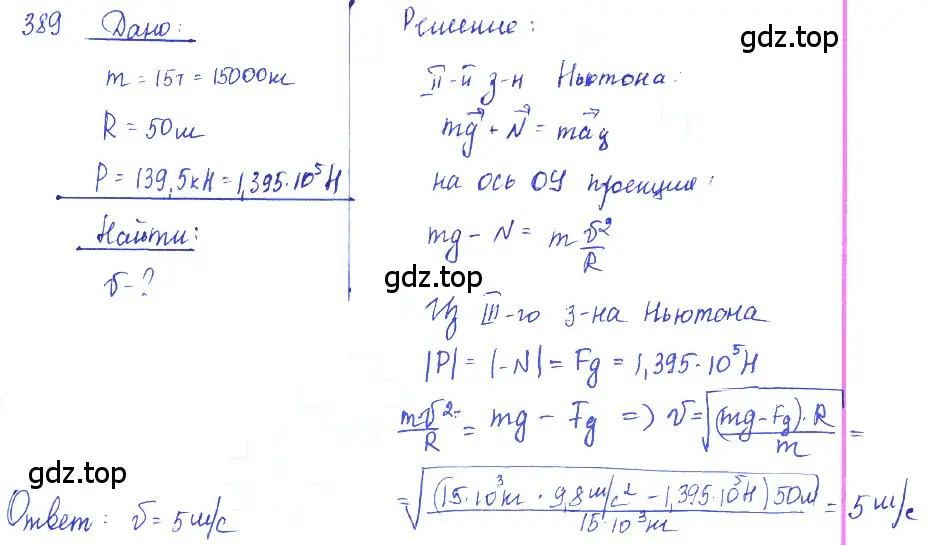 389 Дано:
m = 15т = 15000кг
R = 50м
P = 139,5кН = 1,395·10⁵Н
Найти:
υ-?
Решение:
gdz.top
II-й з-н Ньютона:
mg⃗ + N⃗ = ma⃗ц
на ось OY проекция:
mg - N = m υ²/R
gdz.top
Из III-го з-на Ньютона
|P| = |-N| = Fg = 1,395·10⁵Н
mυ²/R = mg - Fg => υ = √((mg-Fg)·R/m) =
= √((15·10³кг · 9,8м/с² - 1,395·10⁵Н)50м/15·10³кг) = 5м/с
gdz.top
gdz.top
Ответ: υ = 5м/с